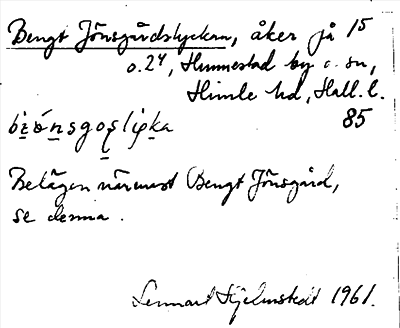 Bengt Jönsgårdslyckan, åker på 15
o. 24, Hunnestad by o. sn,
Himle hd, Hall. l.
85
Belägen närmast Bengt Jönsgård,
se denna.
Lennart Hjelmstedt 1961.